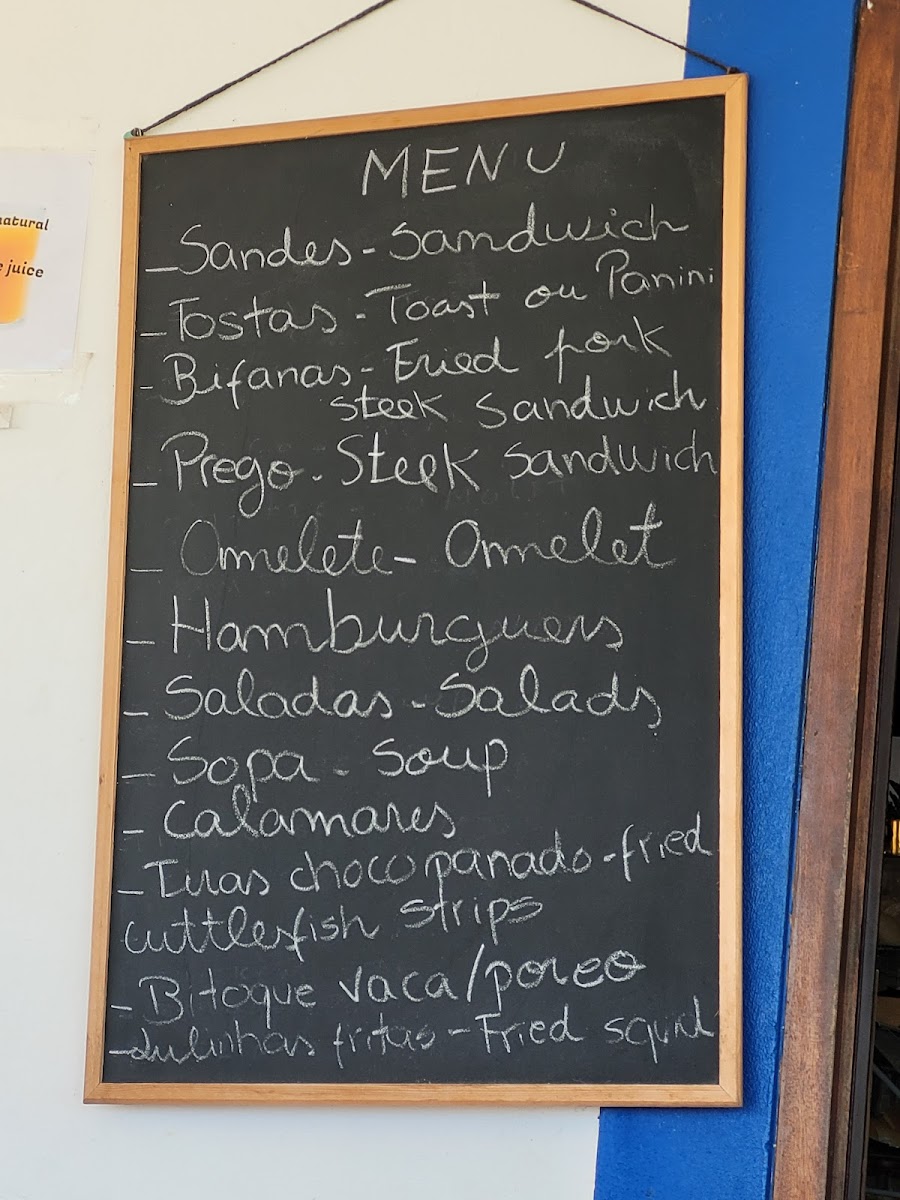 natural
juice
MENU
- Sandes - Sandwich
- Tostas - Toast ou Panini
- Bifanas - Fried pork
steek sandwich
- Prego - Steek sandwich
- Omelete - Omelet
- Hamburguers
- Saladas - Salads
- Sopa - Soup
- Calamares
- Tiras choco panado - fried
cuttlefish strips
- Bitoque vaca/porco
- Lulinhas fritas - Fried squid